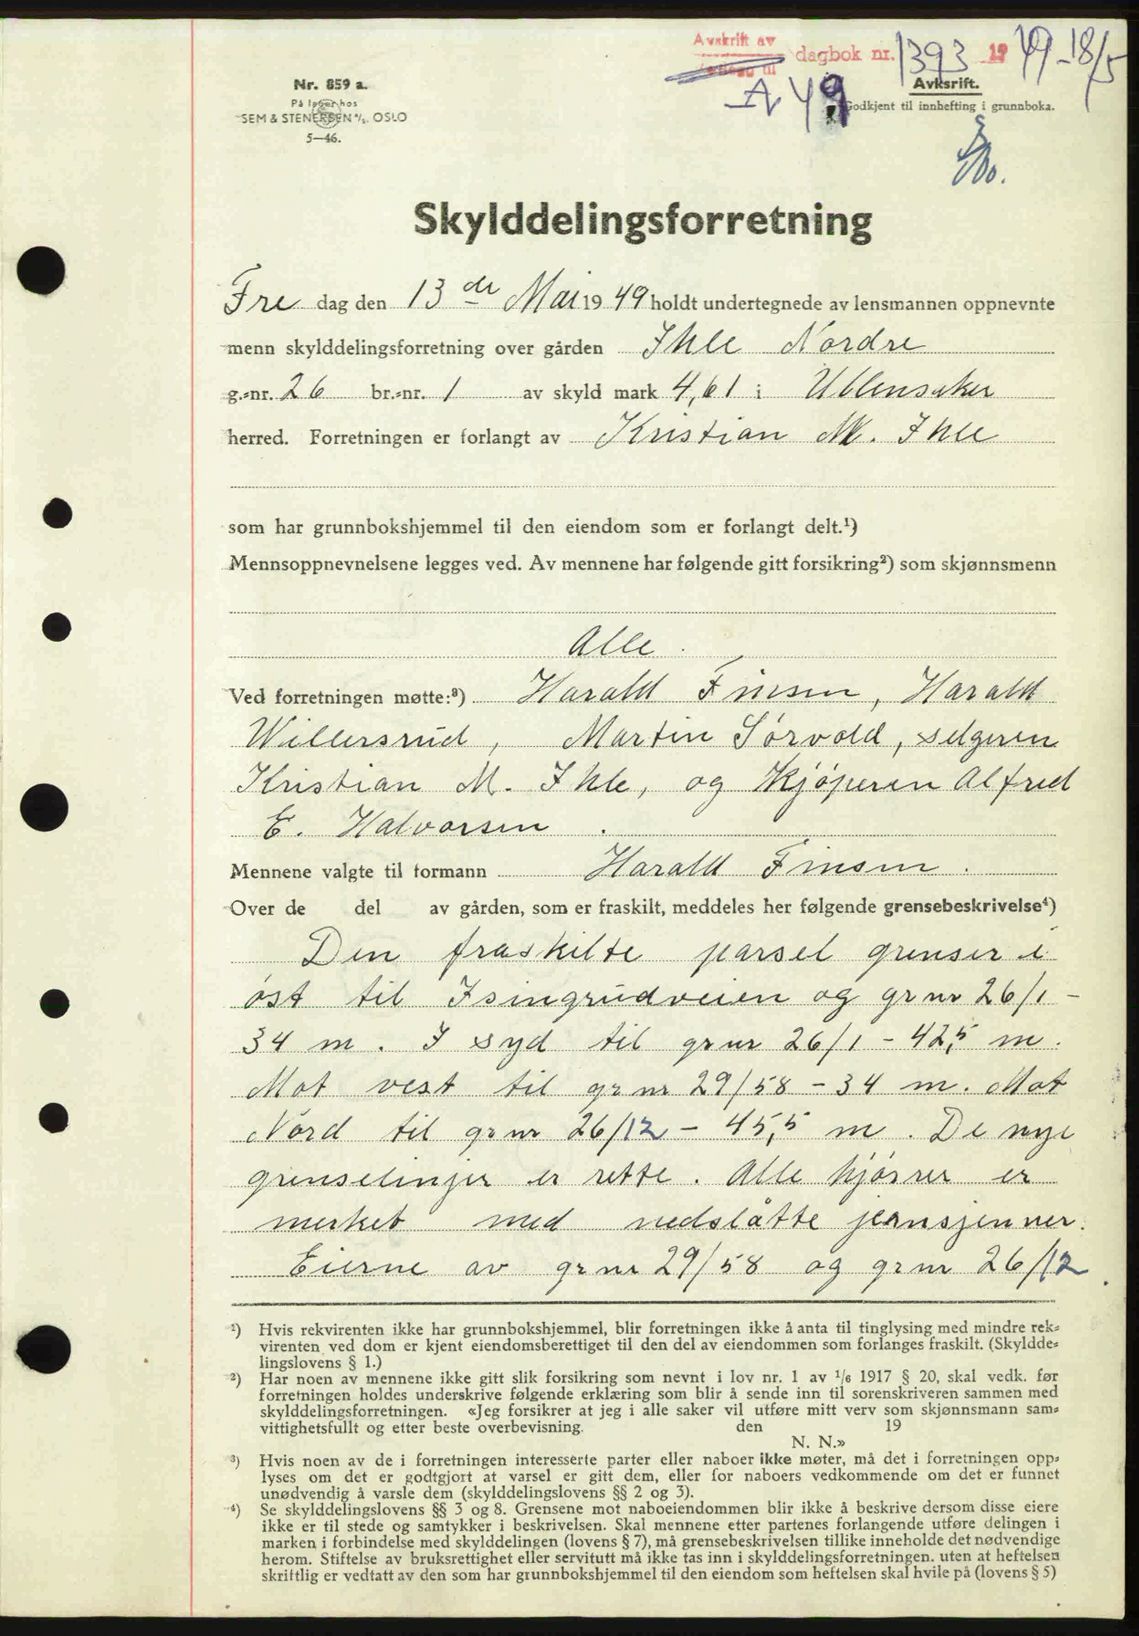 Avskrift av dagbok nr. 1393 1949-18/5
A 49
Nr. 859 a.
På lager hos
SEM & STENERSEN A/S. OSLO
5—46.
Avksrift.
Godkjent til innhefting i grunnboka.
Skylddelingsforretning
Fre dag den 13 de Mai 1949 holdt undertegnede av lensmannen oppnevnte
menn skylddelingsforretning over gården Ihle Nordre
g.-nr. 26 br.-nr. 1 av skyld mark 4,61 i Ullensaker
herred. Forretningen er forlangt av Kristian M. Ihle
som har grunnbokshjemmel til den eiendom som er forlangt delt.¹)
Mennsoppnevnelsene legges ved. Av mennene har følgende gitt forsikring²) som skjønnsmenn
Alle.
Ved forretningen møtte:³) Harald Finsen, Harald
Willersrud, Martin Sørvold, selgeren
Kristian M. Ihle, og Kjøperen Alfred
E. Halvorsen.
Mennene valgte til formann Harald Finsen.
Over de del av gården, som er fraskilt, meddeles her følgende grensebeskrivelse⁴)
Den fraskilte parsel grenser i
øst til Isingrudveien og gr nr 26/1 -
34 m. I syd til gr nr 26/1 - 42,5 m.
Mot vest til gr nr 29/58 - 34 m. Mot
Nord til gr nr 26/12 - 45,5 m. De nye
grenselinjer er rette. Alle hjørner er
merket med nedslåtte jernsjenner.
Eierne av gr nr 29/58 og gr nr 26/12
¹) Hvis rekvirenten ikke har grunnbokshjemmel, blir forretningen ikke å anta til tinglysing med mindre rek-
virenten ved dom er kjent eiendomsberettiget til den del av eiendommen som forlanges fraskilt. (Skyldde-
lingslovens § 1.)
²) Har noen av mennene ikke gitt slik forsikring som nevnt i lov nr. 1 av 1/6 1917 § 20, skal vedk. før
forretningen holdes underskrive følgende erklæring som blir å sende inn til sorenskriveren sammen med
skylddelingsforretningen. «Jeg forsikrer at jeg i alle saker vil utføre mitt verv som skjønnsmann sam-
vittighetsfullt og etter beste overbevisning. den 19
N. N.»
³) Hvis noen av de i forretningen interesserte parter eller naboer ikke møter, må det i forretningen opp-
lyses om det er godtgjort at varsel er gitt dem, eller for naboers vedkommende om det er funnet
unødvendig å varsle dem (skylddelingslovens §§ 2 og 3).
⁴) Se skylddelingslovens §§ 3 og 8. Grensene mot naboeiendommen blir ikke å beskrive dersom disse eiere
ikke er til stede og samtykker i beskrivelsen. Skal mennene etter partenes forlangende utføre delingen i
marken i forbindelse med skylddelingen (lovens § 7), må grensebeskrivelsen tillike inneholde det nødvendige
herom. Stiftelse av bruksrettighet eller servitutt må ikke tas inn i skylddelingsforretningen. uten at heftelsen
skriftlig er vedtatt av den som har grunnbokshjemmel til den eiendom som heftelsen skal hvile på (lovens § 5)